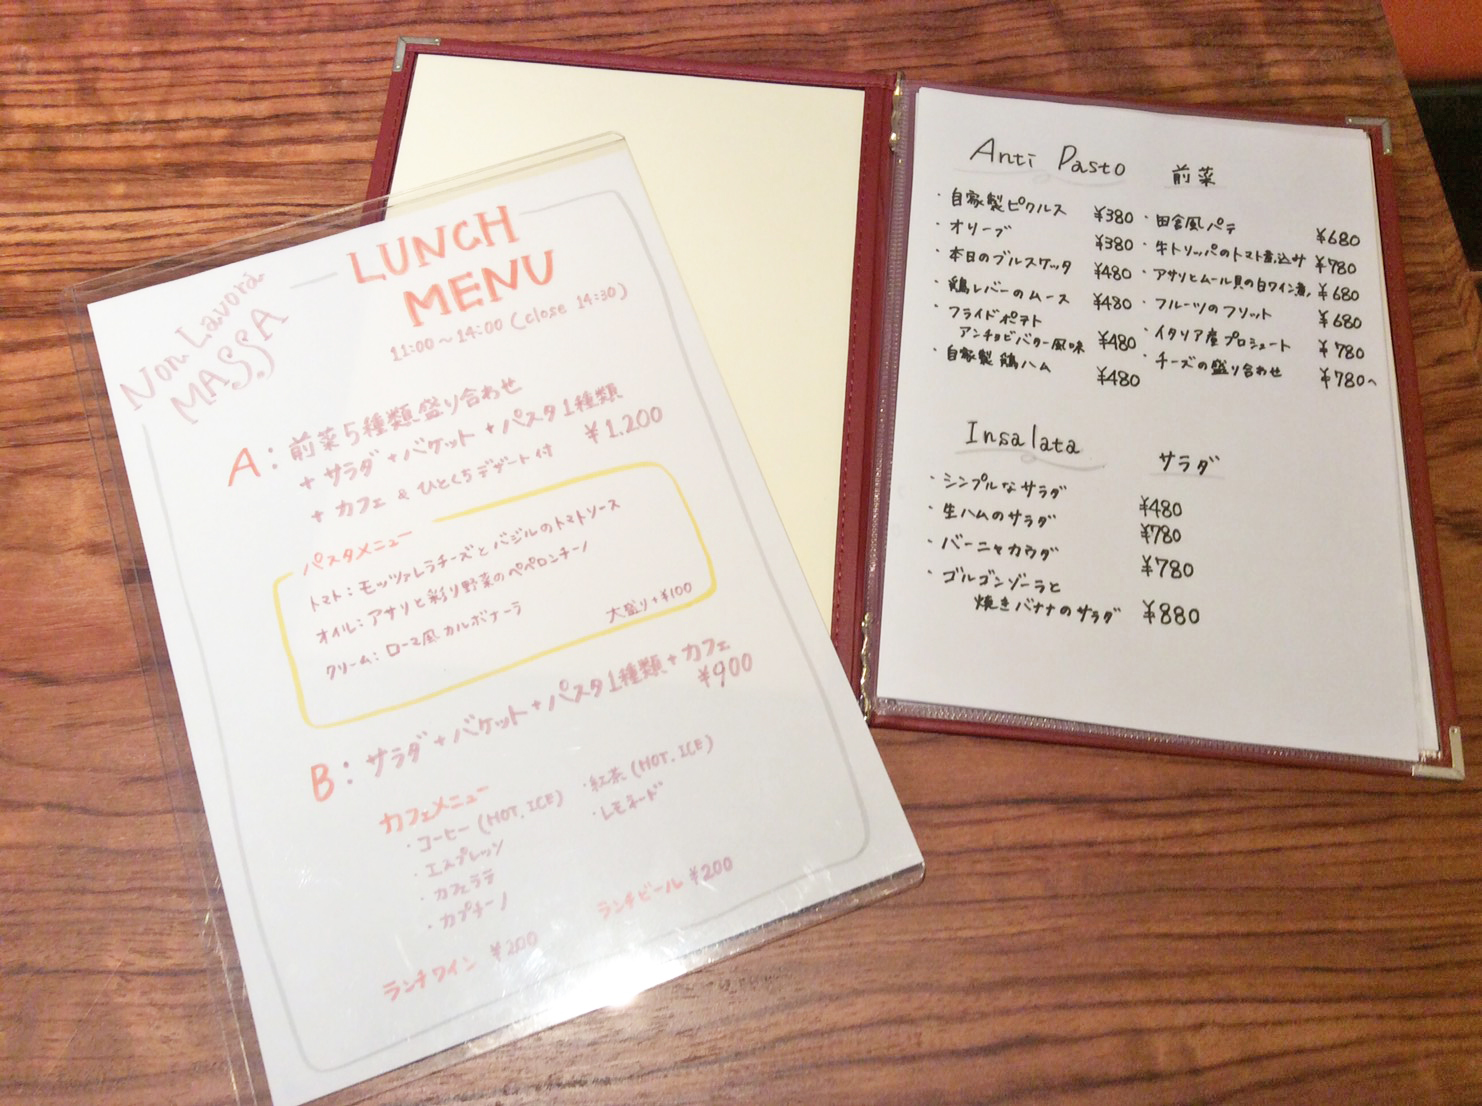 Non Lavorai
MASSA
LUNCH
MENU
11:00～14:00 (close 14:30)
A：前菜5種類盛り合わせ
+ サラダ + バケット + パスタ1種類
+ カフェ & ひとくちデザート付 ¥1,200
パスタメニュー
トマト：モッツァレラチーズとバジルのトマトソース
オイル：アサリと彩り野菜のペペロンチーノ
クリーム：ローマ風カルボナーラ
大盛り+¥100
B：サラダ+バケット+パスタ1種類+カフェ
¥900
カフェメニュー
・コーヒー (HOT. ICE)
・エスプレッソ
・カフェラテ
・カプチーノ
・紅茶 (HOT. ICE)
・レモネード
ランチワイン ¥200
ランチビール ¥200
Anti Pasto 前菜
・自家製ピクルス ¥380
・オリーブ ¥380
・本日のブルスケッタ ¥480
・鶏レバーのムース ¥480
・フライドポテト
アンチョビバター風味 ¥480
・自家製鶏ハム ¥480
・田舎風パテ ¥680
・牛トリッパのトマト煮込み ¥780
・アサリとムール貝の白ワイン蒸し ¥680
・フルーツのフリット ¥680
・イタリア産プロシュート ¥780
・チーズの盛り合わせ ¥780〜
Insalata サラダ
・シンプルなサラダ ¥480
・生ハムのサラダ ¥780
・バーニャカウダ ¥780
・ゴルゴンゾーラと
焼きバナナのサラダ ¥880